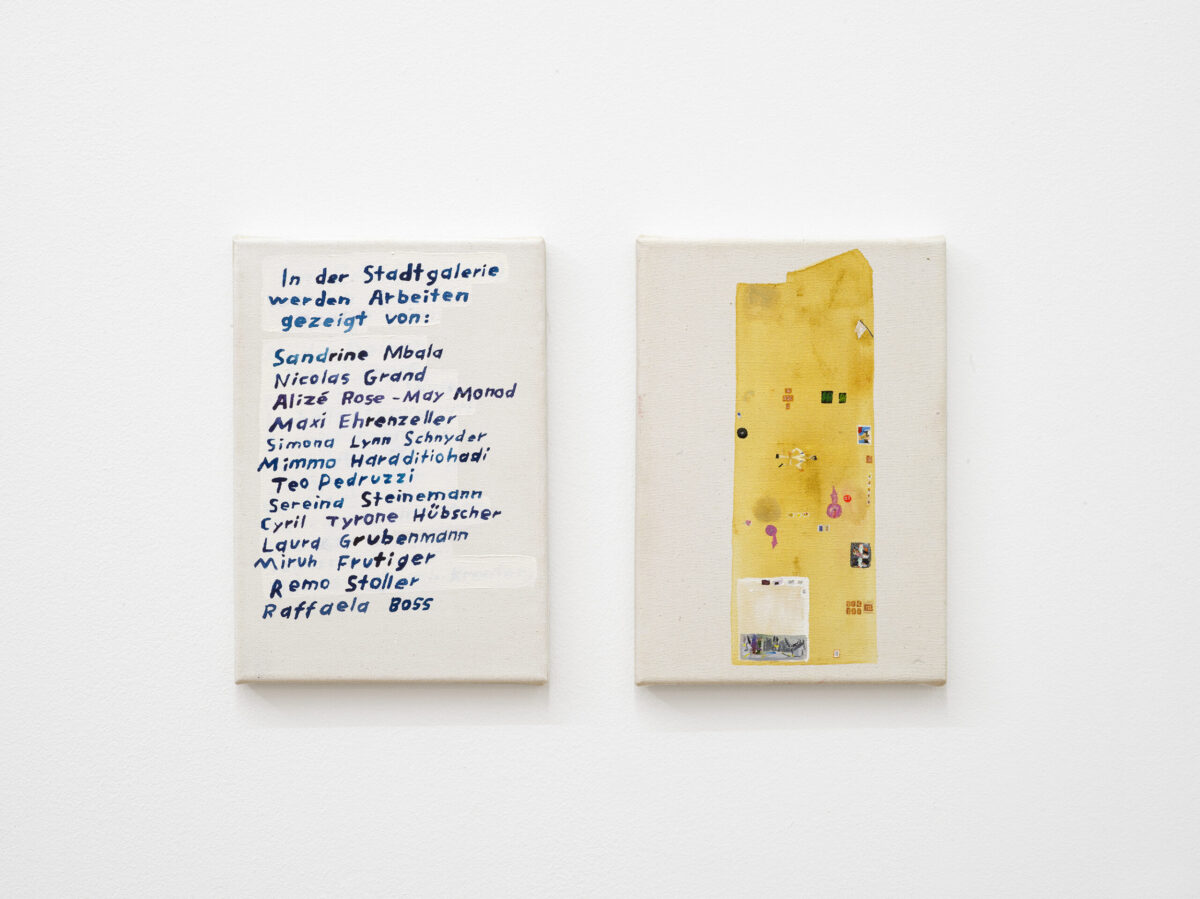 In der Stadtgalerie
werden Arbeiten
gezeigt von:
Sandrine Mbala
Nicolas Grand
Alizé Rose-May Monod
Maxi Ehrenzeller
Simona Lynn Schnyder
Mimmo Haraditiohadi
Teo Pedruzzi
Sereina Steinemann
Cyril Tyrone Hübscher
Laura Grubenmann
Miruh Frutiger
Remo Stoller
Raffaela Boss